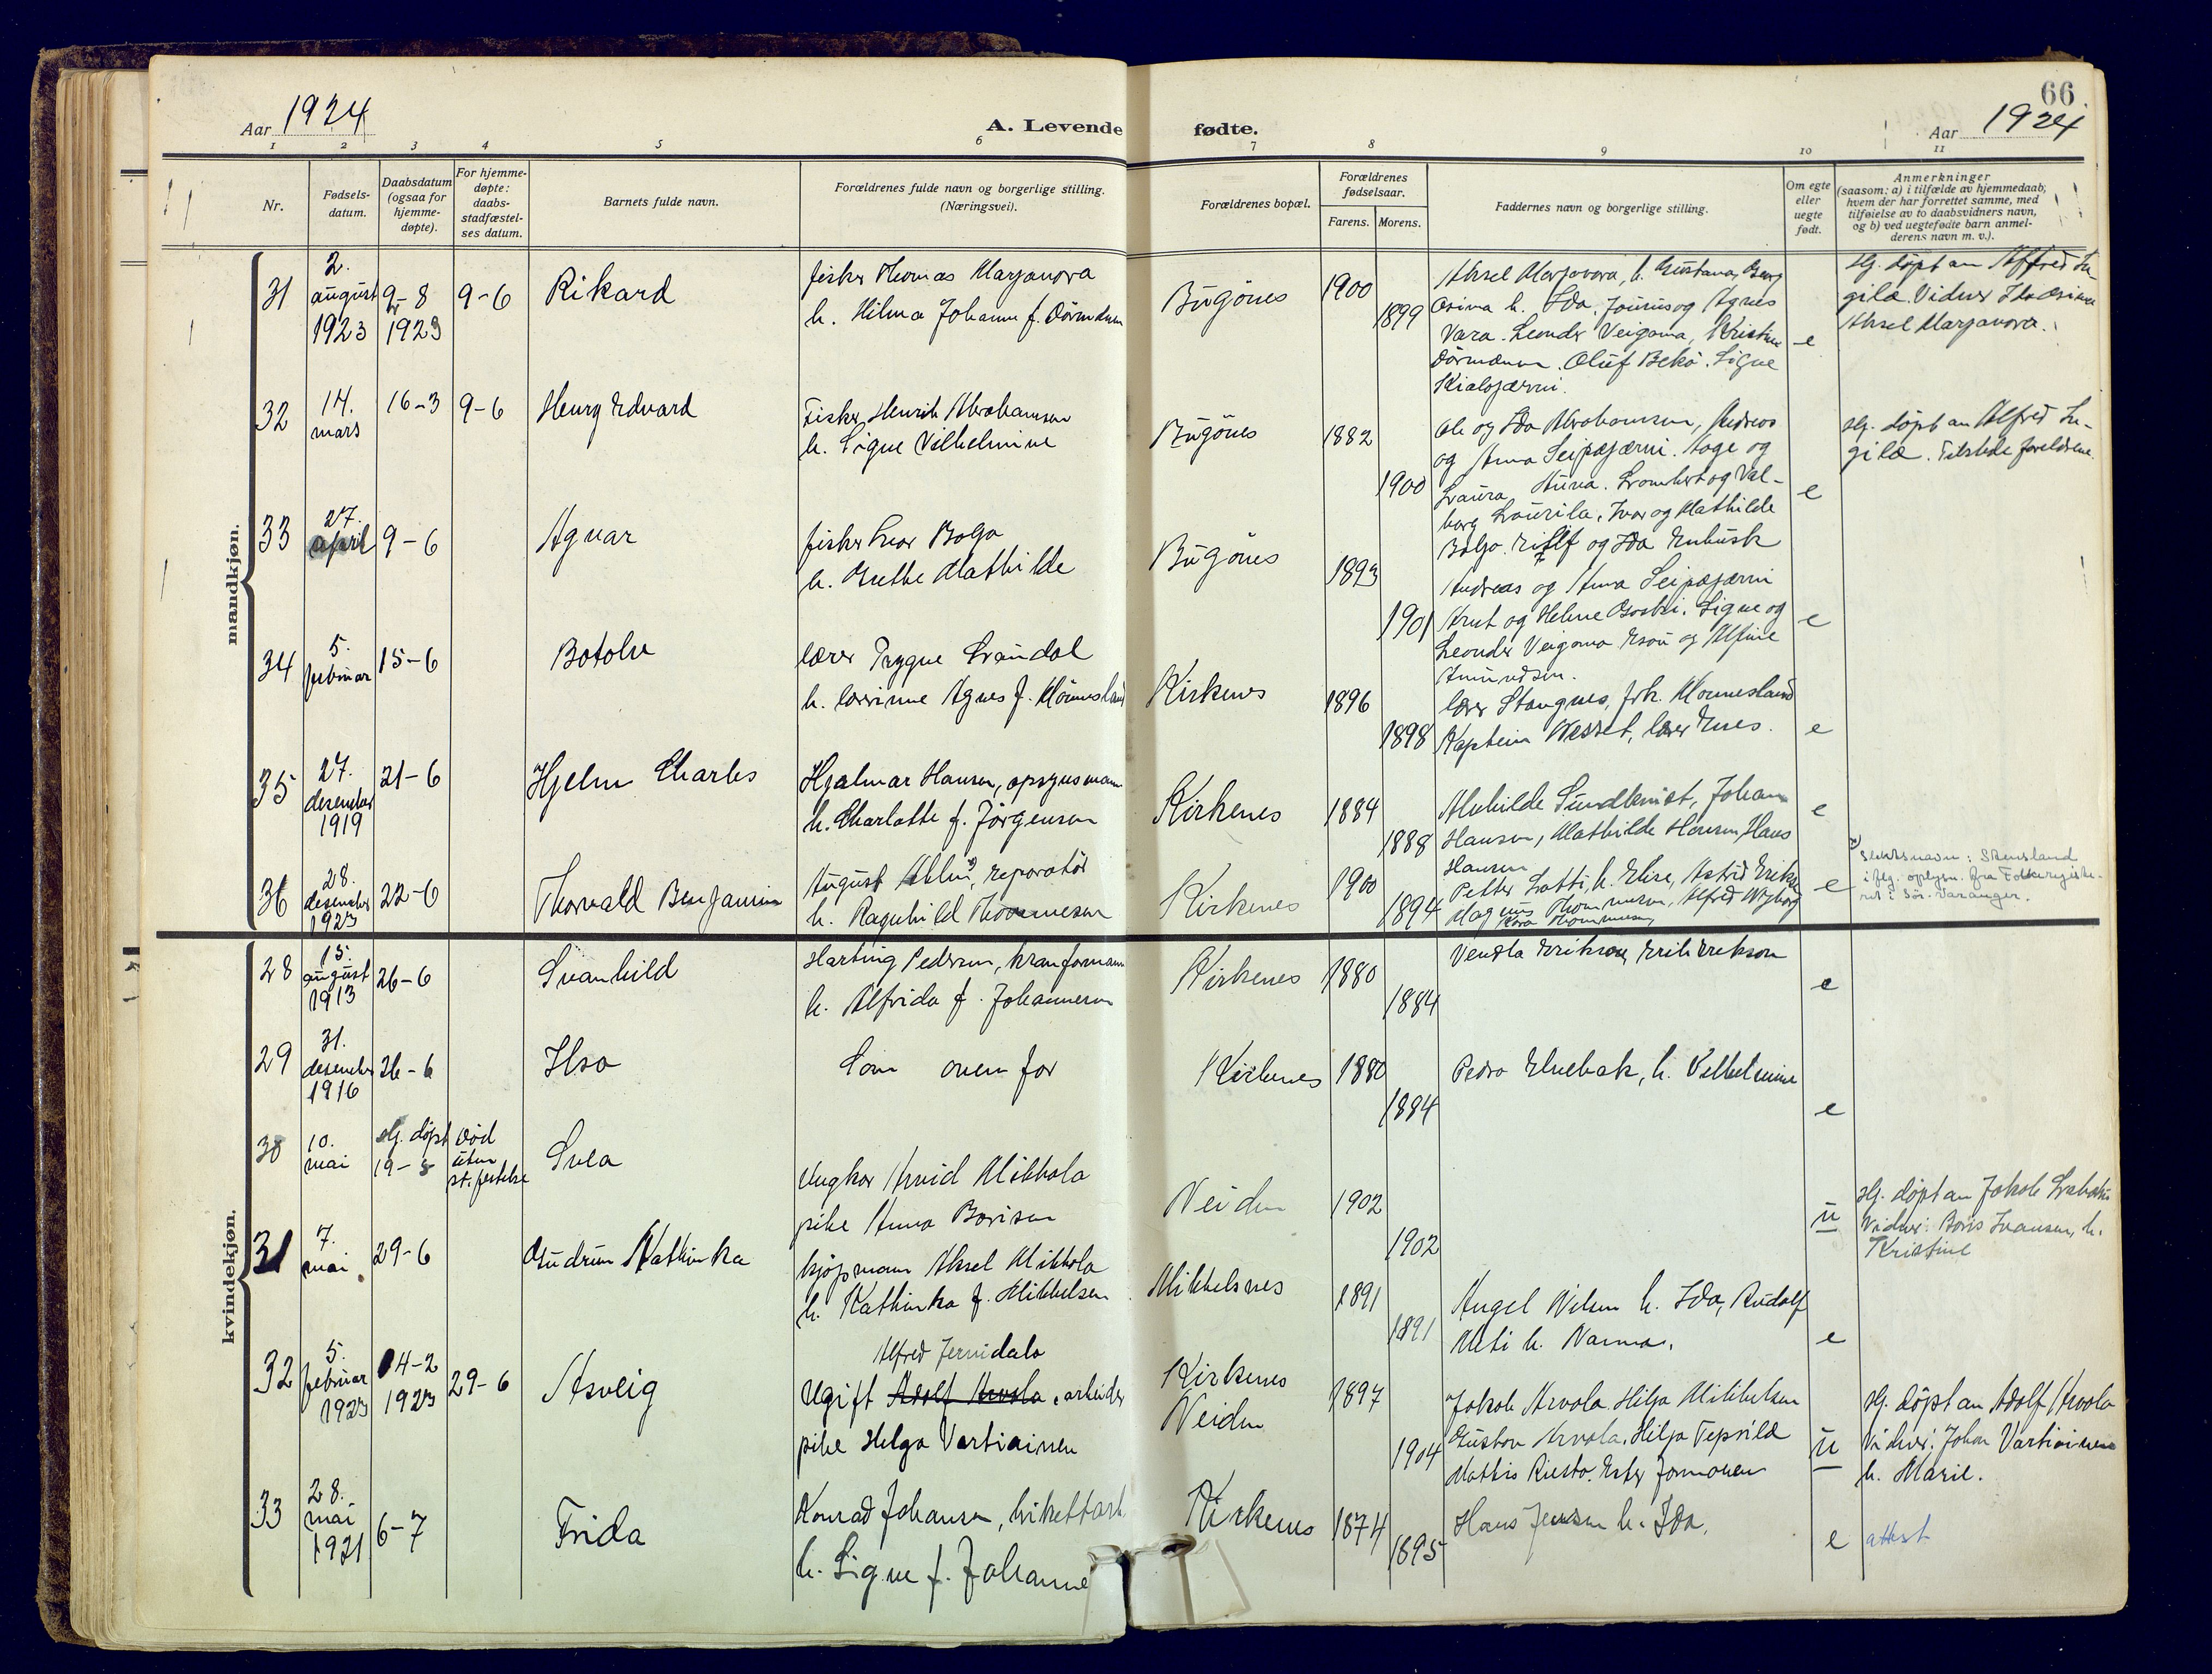 Aar 1924
A. Levende fødte.
66
Aar 1924
1 2 3 4 5 6 7 8 9 10 11
Nr.
Fødsels-
datum.
Daabsdatum
(ogsaa for
hjemme-
døpte).
For hjemme-
døpte:
daabs-
stadfæstel-
ses datum.
Barnets fulde navn.
Forældrenes fulde navn og borgerlige stilling.
(Næringsvei).
Forældrenes bopæl.
Forældrenes
fødselsaar.
Farens. Morens.
Faddernes navn og borgerlige stilling.
Om egte
eller
uegte
født.
Anmerkninger
(saasom: a) i tilfælde av hjemmedaab;
hvem der har forrettet samme, med
tilføielse av to daabsvidners navn,
og b) ved uegtefødte barn anmel-
derens navn m. v.).
mandkjøn.
31
2.
august
1923
9-8
1923
9-6
Rikard
fisker Thomas Marjavara
h. Hilma Johanne f.
Bugönes
1900
1899
Aksel Marjavara, h. Gustava,
h. Ida. og Agnes
Vara. Leander Veigama, Kristine
Oluf Bekö. Signe
e
hj. døpt av Alfred In-
gilæ. Vidner
Aksel Marjavara.
32
14.
mars
16-3
9-6
Henry Edvard
Fisker Henrik Abrahamsen
h. Signe Vilhelmine
Bugönes
1882
1900
Ole og Ida Abrahamsen, Andreas
og Anna Seipæjærvi. Aage og
Laura og Val-
borg Laurila. Ivar og Mathilde
og Ida
e
hj. døpt av Alfred In-
gilæ. Tilstede foreldrene.
33
27.
april
9-6
Agnar
fisker Ivar
h. Grethe Mathilde
Bugönes
1893
1901
Andreas og Anna Seipæjærvi
og Helene Signe og
Leander Veigama og Alfine
Amundsen.
e
34
5.
februar
15-6
Botolv
lærer Trygve
h. lærerinne Agnes f. Mønnesland
Kirkenes
1896
1898
lærer Stangnes, frk. Mønnesland
Kaptein Wesset, lærer
e
35
27.
desember
1919
21-6
Hjelm Charles
Hjalmar Hansen, opsynsmann
h. Charlotte f. Jörgensen
Kirkenes
1884
1888
Mathilde Sundkvist, Johan
Hansen, Mathilde Hansen, Hans
Hansen
e
36
28.
desember
1923
22-6
Thorvald Benjamin
August x), reparatör
h. Ragnhild Thommesen
Kirkenes
1900
1894
Petter Latti, h. Elise, Astrid
Magnus Thommesen, Alfred Nyborg
Kara Thommesen
e
x)
Slektsnavn: Stensland
iflg. oplysn. fra Folkeregiste-
ret i Sör-Varanger.
kvindekjøn.
28
15.
august
1913
26-6
Svanhild
Harting Pedersen, kranformann
h. Alfrida f. Johannesen
Kirkenes
1880
1884
Vendla Erikson, Erik Erikson
e
29
31.
desember
1916
26-6
Ilsa
Som oven for
Kirkenes
1880
1884
Pedro h. Vilhelmine
e
30
10.
mai
hj. døpt
19-5
död
uten
st.festelse
Svea
Ungkar Arvid Mikkola
pike Anna Borisen
Neiden
1902
1902
u
hj. døpt av Jakob
Vidner: Boris Ivansen, h.
Kristine
31
7.
mai
29-6
Gudrun Kathinka
kjøpmann Aksel Mikkola
h. Kathinka f. Mikkelsen
Mikkelsnes
1891
1891
Angel h. Ida, Rudolf
h. Nanna.
e
32
5.
februar
1923
14-2
1923
29-6
Asveig
Alfred Jernidala
Ugift Adolf Arvola, arbeider
pike Helga Vartiainen
Kirkenes
Neiden
1897
1904
Jakob Arvola, Hilja Mikkelsen
Gustav Arvola, Hilja
Mattis Ester
u
hj. døpt av Adolf Arvola
Vidner: Johan Vartiainen
h. Marie.
33
28.
mai
1921
6-7
Frida
Konrad Johansen,
h. Signe f.
Kirkenes
1874
1895
Hans Jensen h. Ida.
e
attest